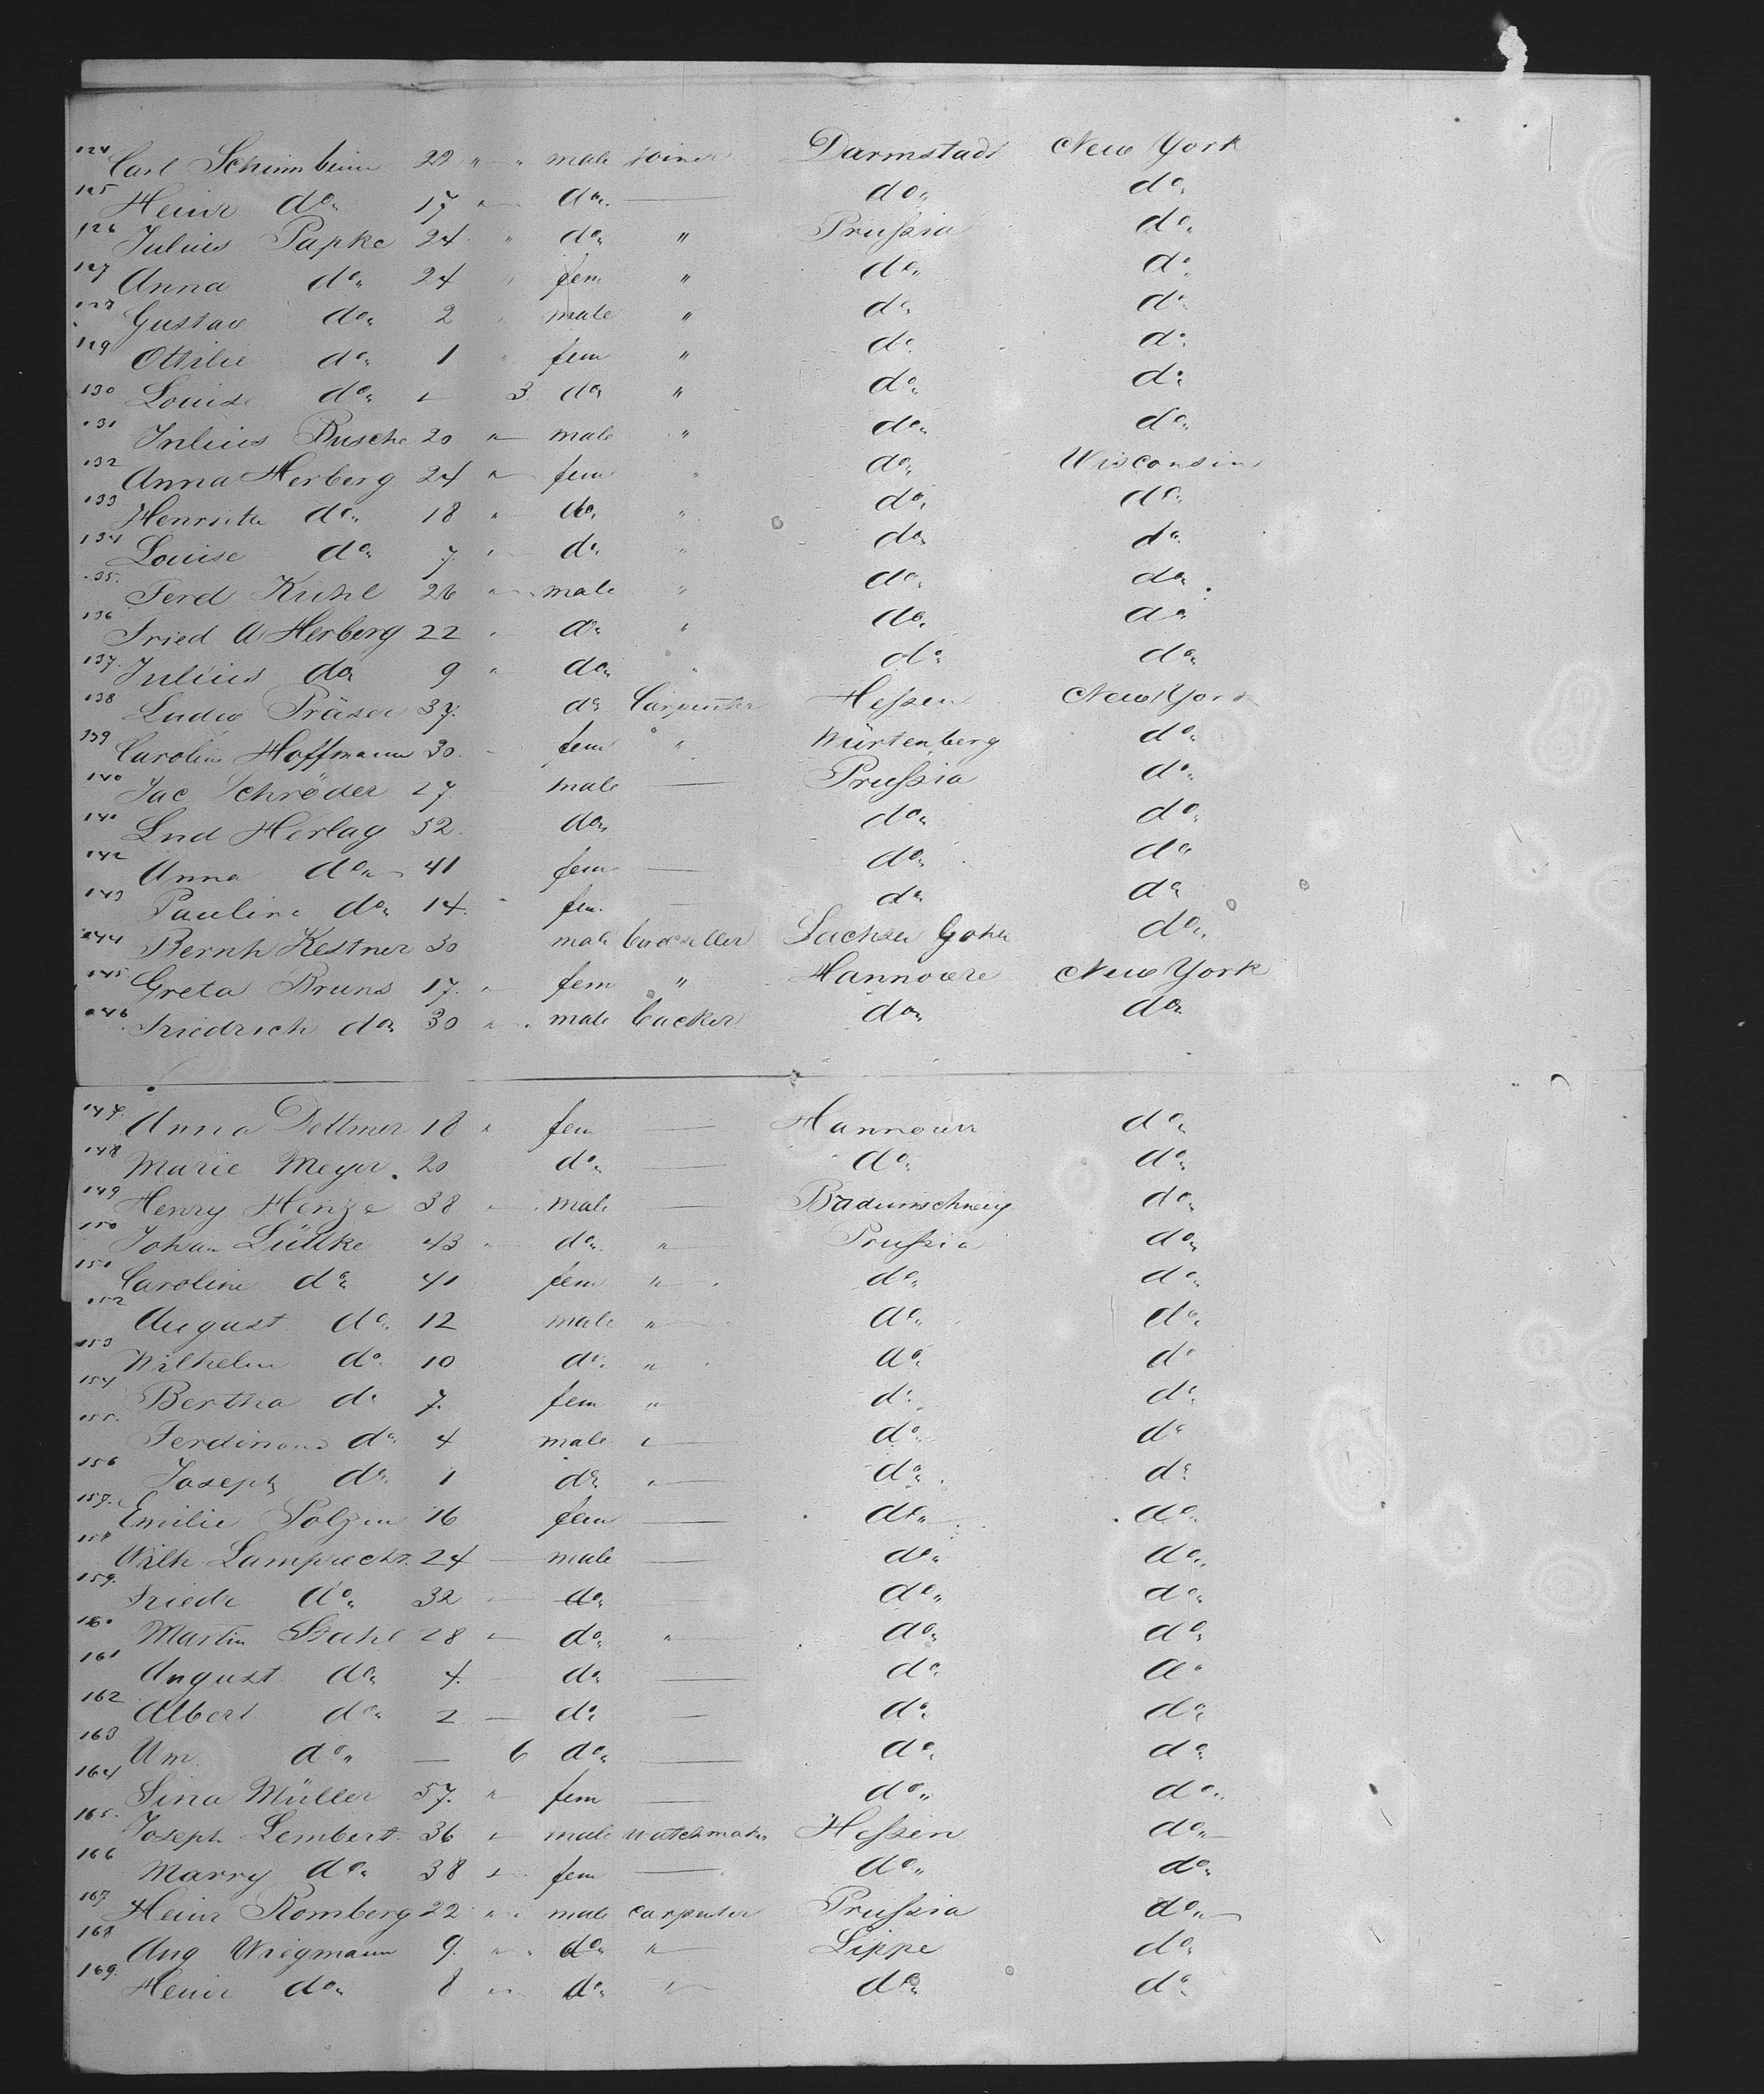 124 Carl Schimbein 22 " " male joiner Darmstadt New York
125 Heinr do 17 " do — do do
126 Julius Papke 24 " do " Prußia do
127 Anna do 24 " fem " do do
128 Gustav do 2 " male " do do
129 Ottilie do 1 " fem " do do
130 Louise do — 3 do " do do
131 Julius Busche 20 " male " do do
132 Anna Herberg 24 " fem " do Wisconsin
133 Henrieta do 18 " do " do do
134 Louise do 7 " do " do do
135 Ferd Kuhl 26 " male " do do
136 Fried A Herberg 22 " do " do do
137 Julius do 9 " do " do do
138 Ludw Präser 37 do Carpenter Heßen New York
139 Caroline Hoffmann 30 fem " Würtenberg do
140 Jac Schröder 27 male — Prußia do
141 Lud Herlag 52 do do do
142 Anna do 41 fem — do do
143 Pauline do 14 " fem — do do
144 Bernh Kestner 30 male Sachsen Gotha do
145 Greta Bruns 17 " fem " Hannovere New York
146 Friedrich do 30 " male backer do do
147 Anna Dettmer 18 " fem — Hannover do
148 Marie Meyer 20 do — do do
149 Henry Henze 38 " male — do
150 Johan Lüttke 43 " do " Prußia do
151 Caroline do 41 fem " do do
152 August do 12 male " do do
153 Wilhelm do 10 do " do do
154 Bertha do 7 fem " do do
155 Ferdinand do 4 male " do do
156 Joseph do 1 do " do do
157 Emilie Polzin 16 fem — do do
158 Wilh Lamprecht 24 — male — do do
159 Friede do 32 — do — do do
160 Martin Stahl 28 " do " do do
161 August do 4 do — do do
162 Albert do 2 — do — do do
163 Wm do — 6 do — do do
164 Lina Müller 57 " fem — do do
165 Joseph Lembert 36 " male watchmaker Heßen do
166 Marry do 38 " fem — do do
167 Heinr Romberg 22 " male carpenter Prußia do
168 Aug Wiegmann 9 " do " Lippe do
169 Heinr do 8 " do " do do